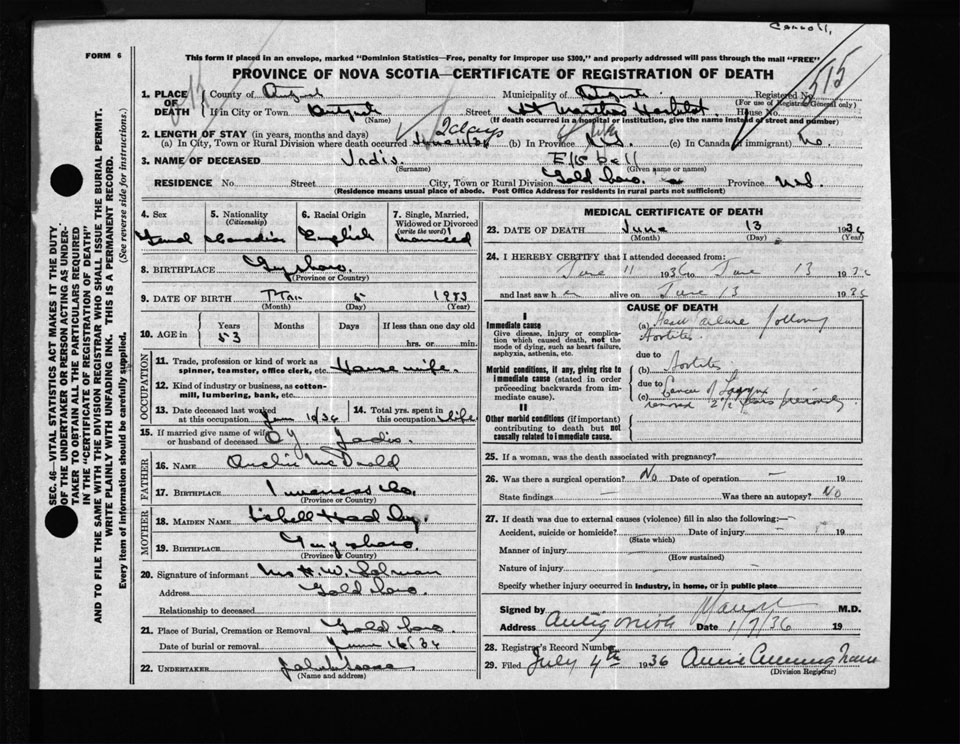 Connoll,
FORM 6
This form if placed in an envelope, marked "Dominion Statistics—Free, penalty for improper use $300," and properly addressed will pass through the mail "FREE"
PROVINCE OF NOVA SCOTIA—CERTIFICATE OF REGISTRATION OF DEATH
515
1. PLACE OF DEATH
County of
Municipality of
Registered No.
(For use of Registrar General only)
If in City or Town
(Name)
Street St Marthas Hospital House No.
(If death occurred in a hospital or institution, give the name instead of street and number)
2. LENGTH OF STAY (in years, months and days)
2 days
(a) In City, Town or Rural Division where death occurred June 11/36 (b) In Province N.S. (c) In Canada (if immigrant) no.
3. NAME OF DECEASED
(Surname)
(Given name or names)
RESIDENCE No. Street City, Town or Rural Division Goldboro Province N.S.
(Residence means usual place of abode. Post Office Address for residents in rural parts not sufficient)
4. Sex
5. Nationality (Citizenship) Canadian
6. Racial Origin English
7. Single, Married, Widowed or Divorced (write the word) Married
8. BIRTHPLACE Guysboro.
(Province or Country)
9. DATE OF BIRTH 5 1883
(Month) (Day) (Year)
10. AGE in
Years 53
Months
Days
If less than one day old
hrs. or min.
OCCUPATION
11. Trade, profession or kind of work as spinner, teamster, office clerk, etc. House wife.
12. Kind of industry or business, as cotton-mill, lumbering, bank, etc.
13. Date deceased last worked at this occupation June 1936
14. Total yrs. spent in this occupation life
15. If married give name of wife or husband of deceased
FATHER
16. NAME
17. BIRTHPLACE Inverness Co.
(Province or Country)
MOTHER
18. MAIDEN NAME
19. BIRTHPLACE Guysboro.
(Province or Country)
20. Signature of informant Mrs H. W.
Address Goldboro
Relationship to deceased
21. Place of Burial, Cremation or Removal Goldboro.
Date of burial or removal June 16/36
22. UNDERTAKER
(Name and address)
MEDICAL CERTIFICATE OF DEATH
23. DATE OF DEATH June 13 1936
(Month) (Day) (Year)
24. I HEREBY CERTIFY that I attended deceased from:
June 11 1936 to June 13 1936
and last saw her alive on June 13 1936
CAUSE OF DEATH
I
Immediate cause
Give disease, injury or complication which caused death, not the mode of dying, such as heart failure, asphyxia, asthenia, etc.
(a) Heart failure following Aortitis
due to
Morbid conditions, if any, giving rise to immediate cause (stated in order proceeding backwards from immediate cause).
(b) Aortitis
due to
(c) Cancer of Larynx
removed 2 1/2 years previously
II
Other morbid conditions (if important) contributing to death but not causally related to immediate cause.
25. If a woman, was the death associated with pregnancy?
26. Was there a surgical operation? No Date of operation —
State findings — Was there an autopsy? No
27. If death was due to external causes (violence) fill in also the following:—
Accident, suicide or homicide? Date of injury 19
(State which)
Manner of injury
(How sustained)
Nature of injury
Specify whether injury occurred in industry, in home, or in public place
Signed by M.D.
Address Antigonish Date 1/7/36 19
28. Registrar's Record Number
29. Filed July 4th 1936 Annie Cunningham
(Division Registrar)
SEC. 46—VITAL STATISTICS ACT MAKES IT THE DUTY OF THE UNDERTAKER OR PERSON ACTING AS UNDERTAKER TO OBTAIN ALL THE PARTICULARS REQUIRED IN THE "CERTIFICATE OF REGISTRATION OF DEATH"
AND TO FILE THE SAME WITH THE DIVISION REGISTRAR WHO SHALL ISSUE THE BURIAL PERMIT.
WRITE PLAINLY WITH UNFADING INK. THIS IS A PERMANENT RECORD.
Every item of information should be carefully supplied. (See reverse side for instructions.)